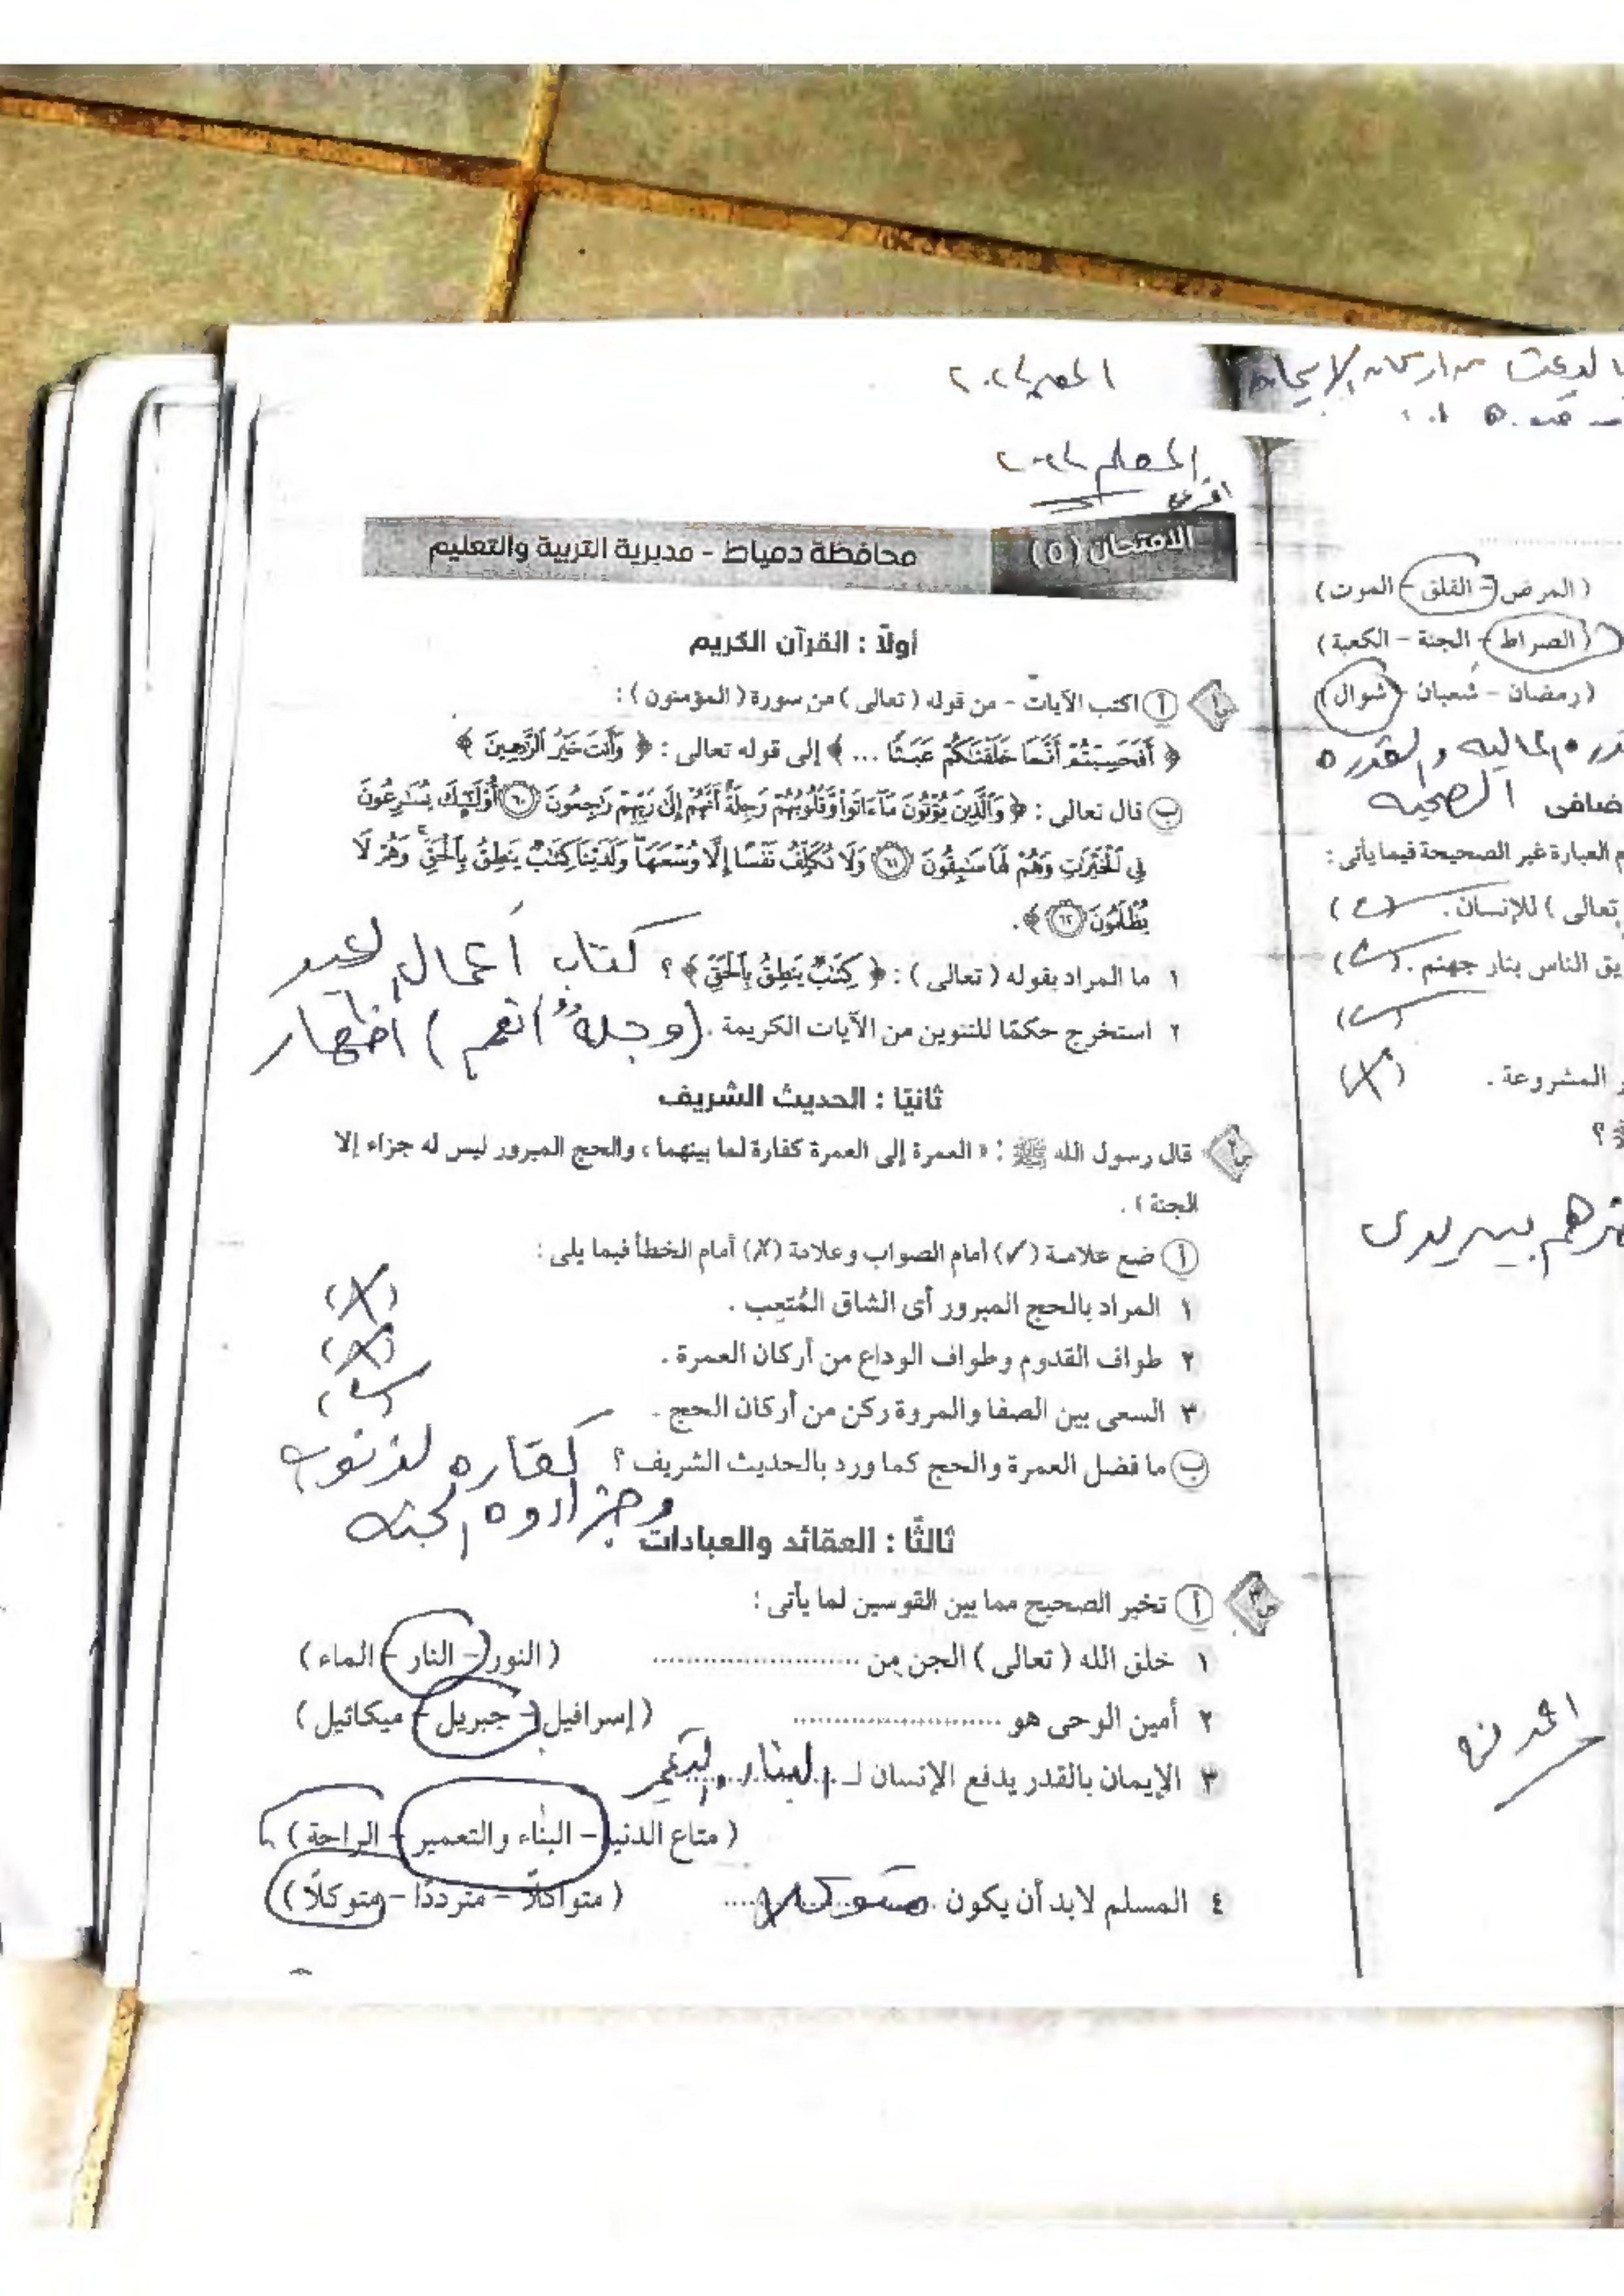 المعلم ٢٠٢٤
المعلم ٢٠٢٤
الامتحان (٥) محافظة دمياط - مديرية التربية والتعليم
أولاً : القرآن الكريم
س١ أ اكتب الآيات - من قوله ( تعالى ) من سورة ( المؤمنون ) :
﴿ أَفَحَسِبْتُمْ أَنَّمَا خَلَقْنَاكُمْ عَبَثًا ... ﴾ إلى قوله تعالى : ﴿ وَأَنتَ خَيْرُ الرَّاحِمِينَ ﴾
ب قال تعالى : ﴿ وَالَّذِينَ يُؤْتُونَ مَا ءَاتَوا وَّقُلُوبُهُمْ وَجِلَةٌ أَنَّهُمْ إِلَى رَبِّهِمْ رَاجِعُونَ ٦٠ أُوْلَئِكَ يُسَارِعُونَ
فِي الْخَيْرَاتِ وَهُمْ لَهَا سَابِقُونَ ٦١ وَلَا نُكَلِّفُ نَفْسًا إِلَّا وُسْعَهَا وَلَدَيْنَا كِتَابٌ يَنطِقُ بِالْحَقِّ وَهُمْ لَا
يُظْلَمُونَ ٦٢ ﴾.
١ ما المراد بقوله ( تعالى ) : ﴿ كِتَابٌ يَنطِقُ بِالْحَقِّ ﴾ ؟ كتاب أعمال العبد
٢ استخرج حكمًا للتنوين من الآيات الكريمة . (وجلةٌ أنهم) أظهار
ثانيًا : الحديث الشريف
س٢ قال رسول الله ﷺ : « العمرة إلى العمرة كفارة لما بينهما ، والحج المبرور ليس له جزاء إلا
الجنة » .
أ ضع علامة (✓) أمام الصواب وعلامة (✗) أمام الخطأ فيما يلى :
١ المراد بالحج المبرور أى الشاق المُتعِب . (✗)
٢ طواف القدوم وطواف الوداع من أركان العمرة . (✗)
٣ السعى بين الصفا والمروة ركن من أركان الحج . (✓)
ب ما فضل العمرة والحج كما ورد بالحديث الشريف ؟ كفاره لذنوب
وجزاروه الجنه
ثالثًا : العقائد والعبادات
س٣ أ تخير الصحيح مما بين القوسين لما يأتى :
١ خلق الله ( تعالى ) الجن من .................... ( النور - النار - الماء )
٢ أمين الوحى هو .................... ( إسرافيل - جبريل - ميكائيل )
٣ الإيمان بالقدر يدفع الإنسان لـ
( متاع الدنيا - البناء والتعمير - الراحة )
٤ المسلم لابد أن يكون متوكلا ( متواكلًا - مترددًا - متوكلًا )
( المرض - القلق - الموت )
( الصراط - الجنة - الكعبة )
( رمضان - شعبان - شوال )
الماليه والقدره
الصحيه
العبارة غير الصحيحة فيما يأتى :
تعالى ) للإنسان . (✓)
الناس بنار جهنم . (✓)
(✓)
المشروعة . (✗)
؟